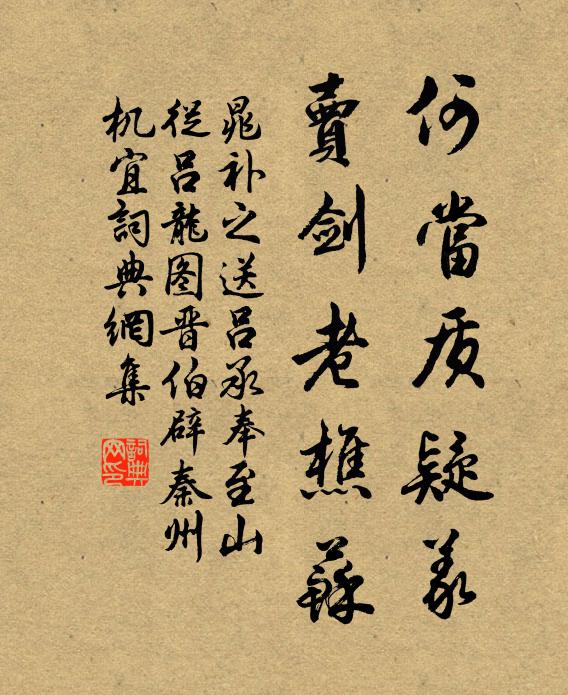 何當质疑义
賣剑老樵蘇
晁补之送吕承奉至山
從吕龍图晋伯辟秦州
机宜詞典網集
詞典
网印